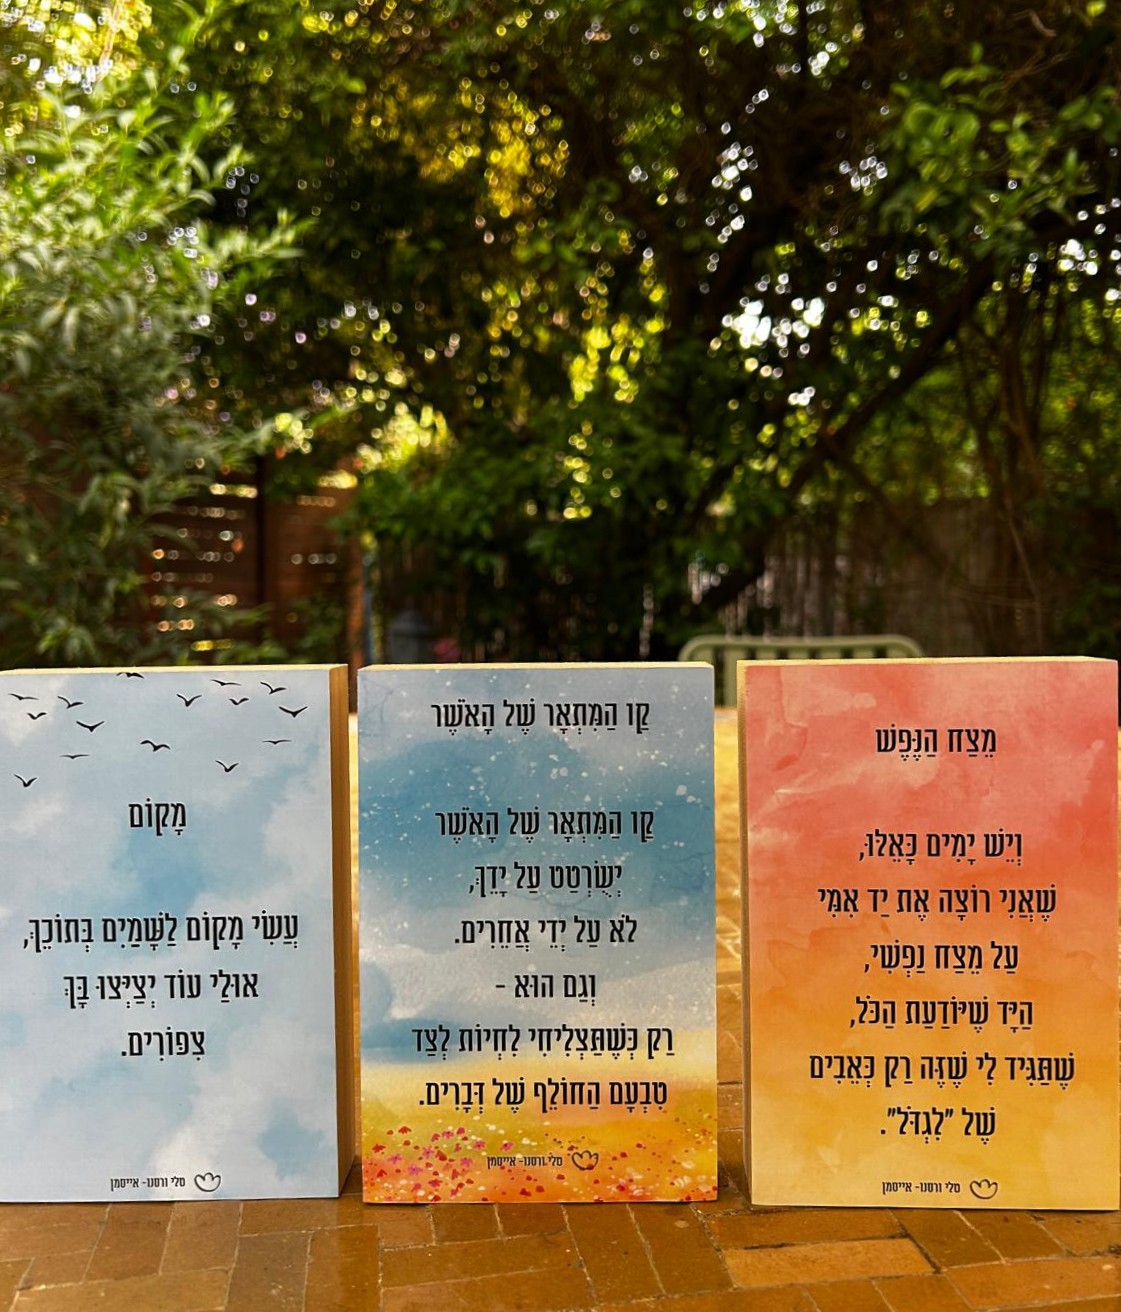 מֵצַח הַנֶּפֶשׁ
וְיֵשׁ יָמִים כָּאֵלּוּ,
שֶׁאֲנִי רוֹצָה אֶת יַד אִמִּי
עַל מֵצַח נַפְשִׁי,
הַיָּד שֶׁיּוֹדַעַת הַכֹּל,
שֶׁתַּגִּיד לִי שֶׁזֶּה רַק כְּאֵבִים
שֶׁל "לִגְדֹּל".
סלי ורסנו- אייסמן
קַו הַמִּתְאָר שֶׁל הָאֹשֶׁר
קַו הַמִּתְאָר שֶׁל הָאֹשֶׁר
יְשֻׂרְטַט עַל יָדֵךְ,
לֹא עַל יְדֵי אֲחֵרִים.
וְגַם הוּא -
רַק כְּשֶׁתַּצְלִיחִי לִחְיוֹת לְצַד
טִבְעָם הַחוֹלֵף שֶׁל דְּבָרִים.
סלי ורסנו- אייסמן
מָקוֹם
עֲשִׂי מָקוֹם לַשָּׁמַיִם בְּתוֹכֵךְ,
אוּלַי עוֹד יְצַיְּצוּ בָּךְ
צִפּוֹרִים.
סלי ורסנו- אייסמן